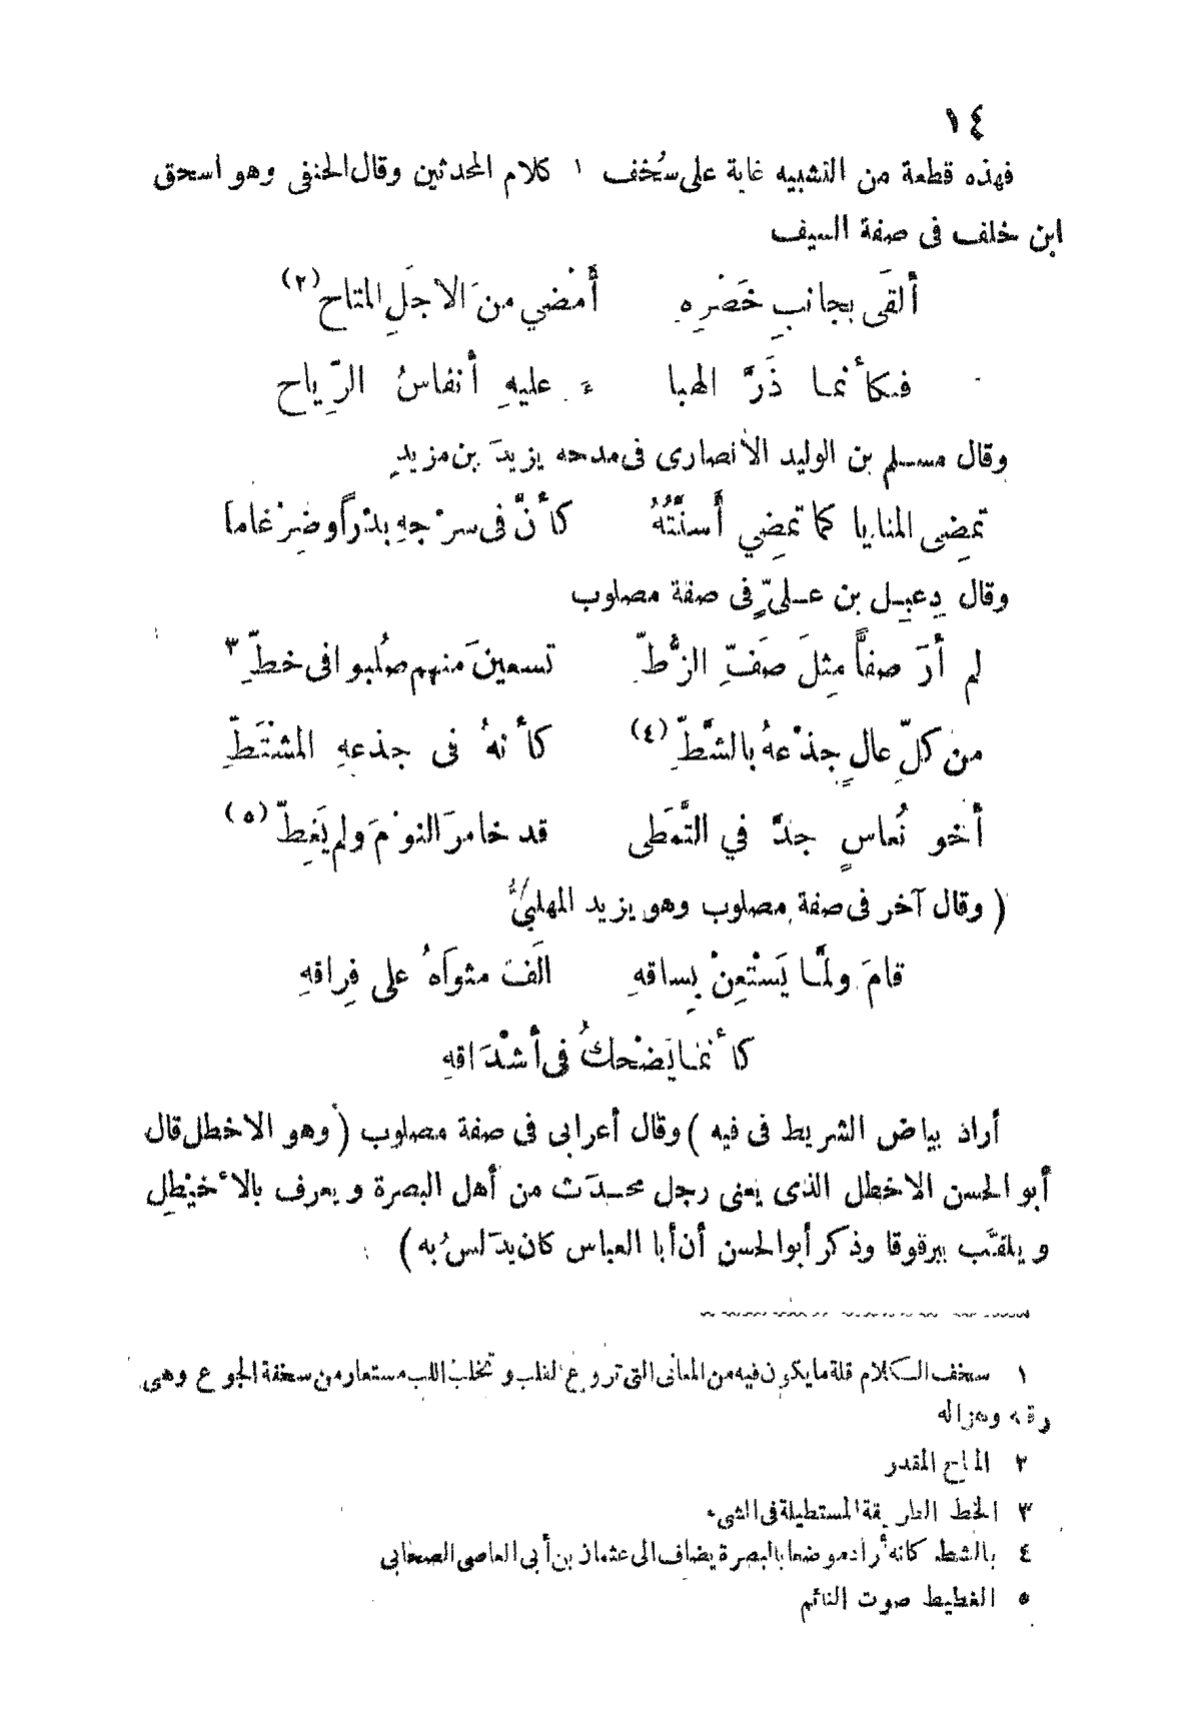 ١٤
فهذه قطعة من التشبيه غاية على سُخف ١ كلام المحدثين وقال الحنفى وهو اسحق
ابن خلف فى صفة السيف
ألقَى بجانبِ خَصْرِهِ أَمْضي منَ الاجَلِ المتاح (٢)
فكأنما ذَرَّ الهبا ء عليهِ أنفاسُ الرّياح
وقال مسلم بن الوليد الأنصارى فى مدحه يزيدَ بن مزيدٍ
تمضِى المنايا كما تمضِي أَسنَّتُهُ كأنَّ فى سرْجهِ بدْراً وضِرْغاما
وقال دِعبِل بن علىٍّ فى صفة مصلوب
لم أرَ صفاًّ مِثلَ صَفِّ الزُّطِّ تسعينَ منهم صُلبوا فى خطِّ ٣
من كلِّ عالٍ جذْعهُ بالشَّطِّ (٤) كأنهُ فى جذعهِ المشْتَطِّ
أخو نُعاسٍ جدَّ في التَّمَطى قد خامرَ النوْمَ ولم يَغِطِّ (٥)
( وقال آخر فى صفة مصلوب وهو يزيد المهلبيُّ
قامَ ولمَّا يَسْتَعِنْ بِساقهِ آلَفَ مثواَهُ على فِراقهِ
كأنما يَضْحكُ فى أشْدَاقهِ
أراد بياض الشريط فى فيه ) وقال أعرابى فى صفة مصلوب ( وهو الاخطل قال
أبو الحسن الاخطل الذى يعنى رجل محدَث من أهل البصرة ويعرف بالأخيْطِل
ويلقَّب ببرقوقا وذكر أبو الحسن أن أبا العباس كان يدَلسُ به )
١ سخف الكلام قلة ما يكون فيه من المعانى التى تروع القلب وتخلب اللب مستعار من سخفة الجوع وهى
رقته وهزاله
٢ المتاح المقدر
٣ الخط الطريقة المستطيلة فى الشىء
٤ بالشط كانه أراد موضعا بالبصرة يضاف الى عثمان بن أبى العاصى الصحابى
٥ الغطيط صوت النائم